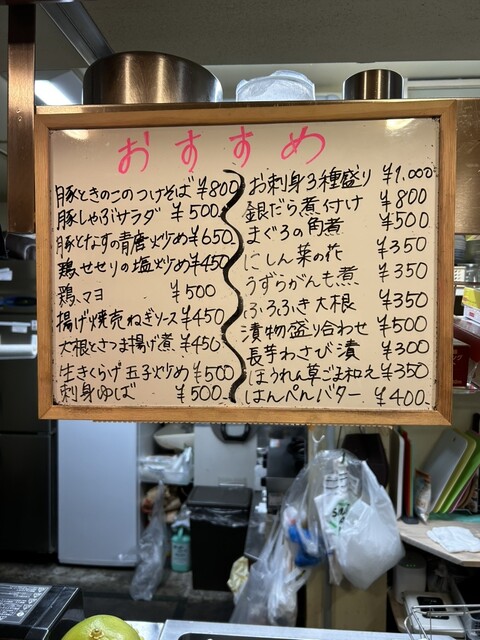 おすすめ
豚ときのこのつけそば ¥800
豚しゃぶサラダ ¥500
豚となすの青唐炒め ¥650
鶏せせりの塩炒め ¥450
鶏マヨ ¥500
揚げ焼売ねぎソース ¥450
大根とさつま揚げ煮 ¥450
生きくらげ玉子炒め ¥500
刺身ゆば ¥500
お刺身3種盛り ¥1,000
銀だら煮付け ¥800
まぐろの角煮 ¥500
にしん菜の花 ¥350
うずらがんも煮 ¥350
ふろふき大根 ¥350
漬物盛り合わせ ¥500
長芋わさび漬 ¥300
ほうれん草ごま和え ¥350
はんぺんバター ¥400